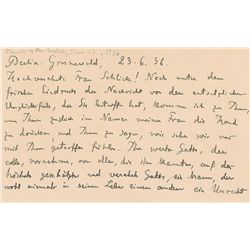 Berlin-Grunewald, 23.6.36.
Hochverehrte Frau Schlick! Noch unter dem
frischen Eindrucke der Nachricht von dem entsetzlichen
Unglücksfalle, der Sie betroffen hat, komme ich zu Ihnen,
um Ihnen zugleich im Namen meiner Frau die Hand
zu drücken, und Ihnen zu sagen, wie sehr wir uns
mit Ihnen getroffen fühlen. Ihr werter Gatte, der
edle, vornehme, von allen, die ihn kannten, auf das
höchste geschätzte und verehrte Gatte, ein Mann, der
wohl niemals in seinem Leben einem andern ein Unrecht